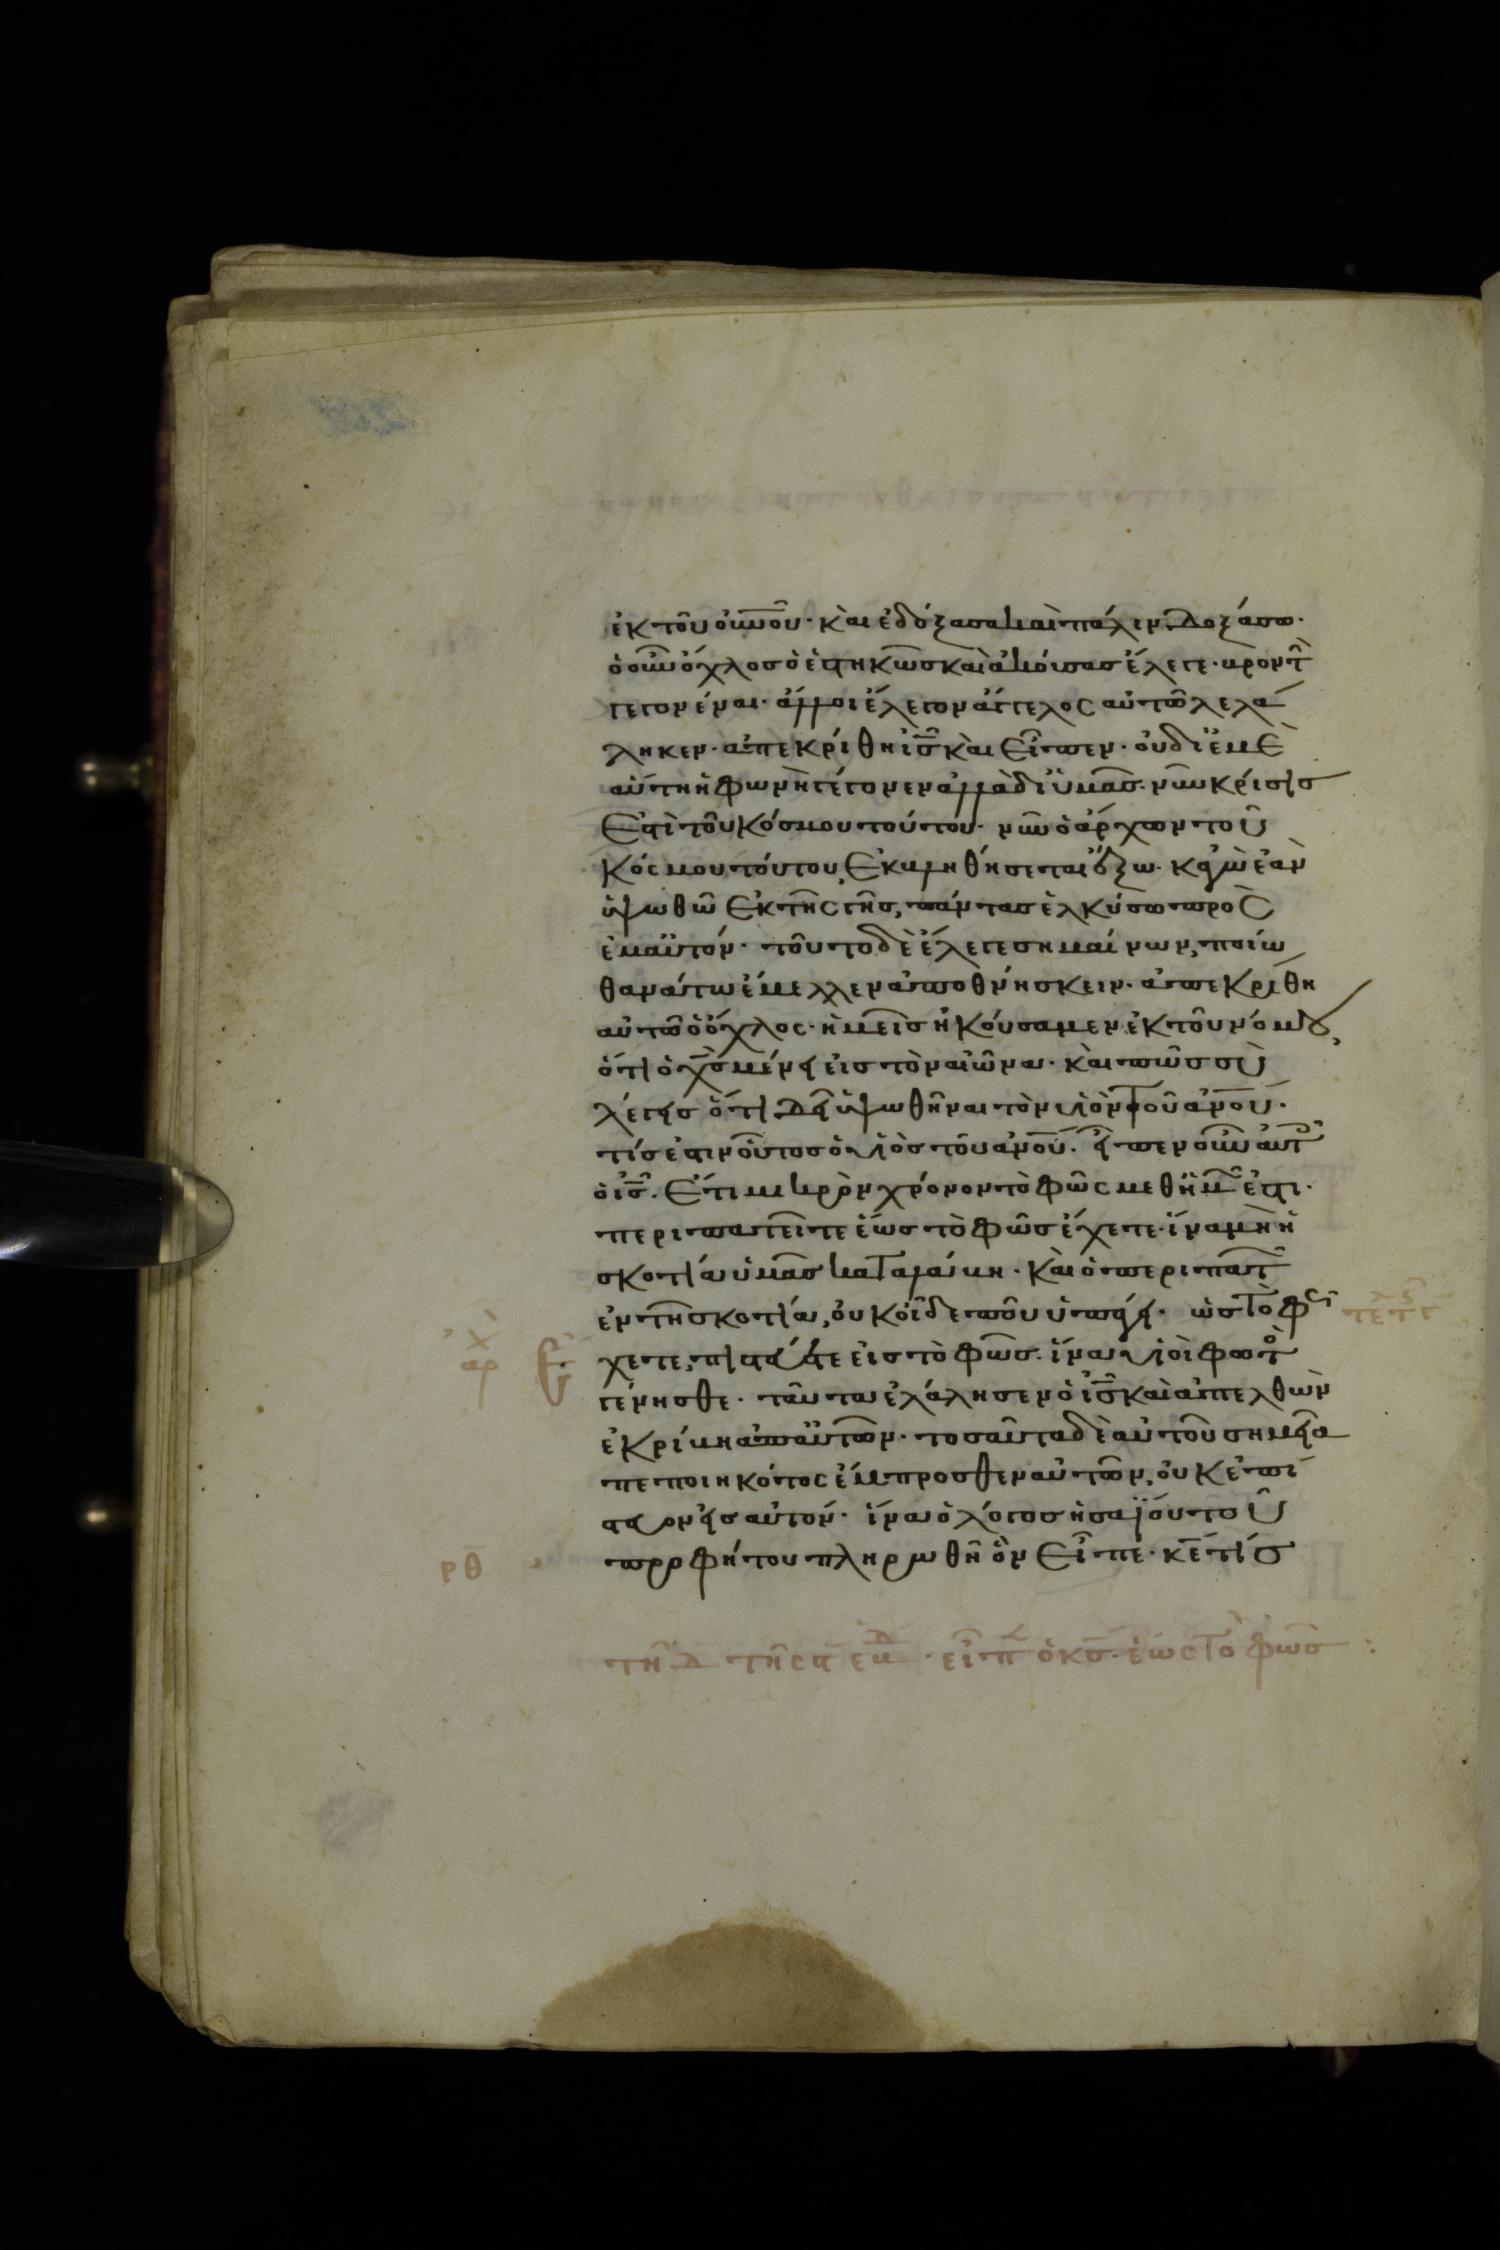 ἐκ τοῦ οὐνοῦ· καὶ ἐδόξασα καὶ πάλιν δοξάσω·
ὁ οὖν ὄχλος ὁ ἑστηκὼς καὶ ἀκούσας ἔλεγε· βροντ
γεγονέναι· ἄλλοι ἔλεγον ἄγγελος αὐτῶ λελά
ληκεν· ἀπεκρίθη ἰς καὶ εἶπεν· οὐ δι ἐμὲ
αὕτη ἡ φωνὴ γέγονεν ἀλλὰ δι ὑμᾶς· νῦν κρίσις
ἐστὶ τοῦ κόσμου τούτου· νῦν ὁ ἄρχων τοῦ
κόσμου τούτου, ἐκβληθήσεται ἔξω· κἀγὼ ἐὰν
ὑψωθῶ ἐκ τῆς γῆς, πάντας ἑλκύσω πρὸς
ἐμαυτόν· τοῦτο δὲ ἔλεγε σημαίνων, ποίω
θανάτω ἔμελλεν ἀποθνήσκειν· ἀπεκρίθη
αὐτῶ ὁ ὄχλος· ἡμεῖς ἠκούσαμεν ἐκ τοῦ νόμου,
ὅτι ὁ χς μένει εἰς τὸν αἰῶνα· καὶ πῶς σὺ
λέγεις ὅτι δεῖ ὑψωθῆναι τὸν υἱὸν τοῦ ανου·
τίς ἐστιν οὗτος ὁ υἱὸς τοῦ ανου· εἶπεν οὖν αὐτ
ὁ ις· ἔτι μικρὸν χρόνον τὸ φῶς μεθ ἡμ ἐστι·
περιπατεῖτε ἕως τὸ φῶς ἔχετε· ἵνα μὴ ἡ
σκοτία ὑμᾶς καταλάβη· καὶ ὁ περιπατ
ἐν τῆ σκοτία, οὐκ οἶδε ποῦ ὑπάγει· ὡς τὸ φ
χετε, πιστεύετε εἰς τὸ φῶς· ἵνα υἱοὶ φωτὸ
γένησθε· ταῦτα ἐλάλησεν ὁ ις καὶ ἀπελθὼν
ἐκρίβη ἀπ αὐτῶν· τοσαῦτα δὲ αὐτοῦ σημεῖα
πεποιηκότος ἔμπροσθεν αὐτῶν, οὐκ ἐπί
στευον εἰς αὐτόν· ἵνα ὁ λόγος ἡσαΐου τοῦ
προφήτου πληρωθῆ ὃν εἶπε· κε τίς
ρθ